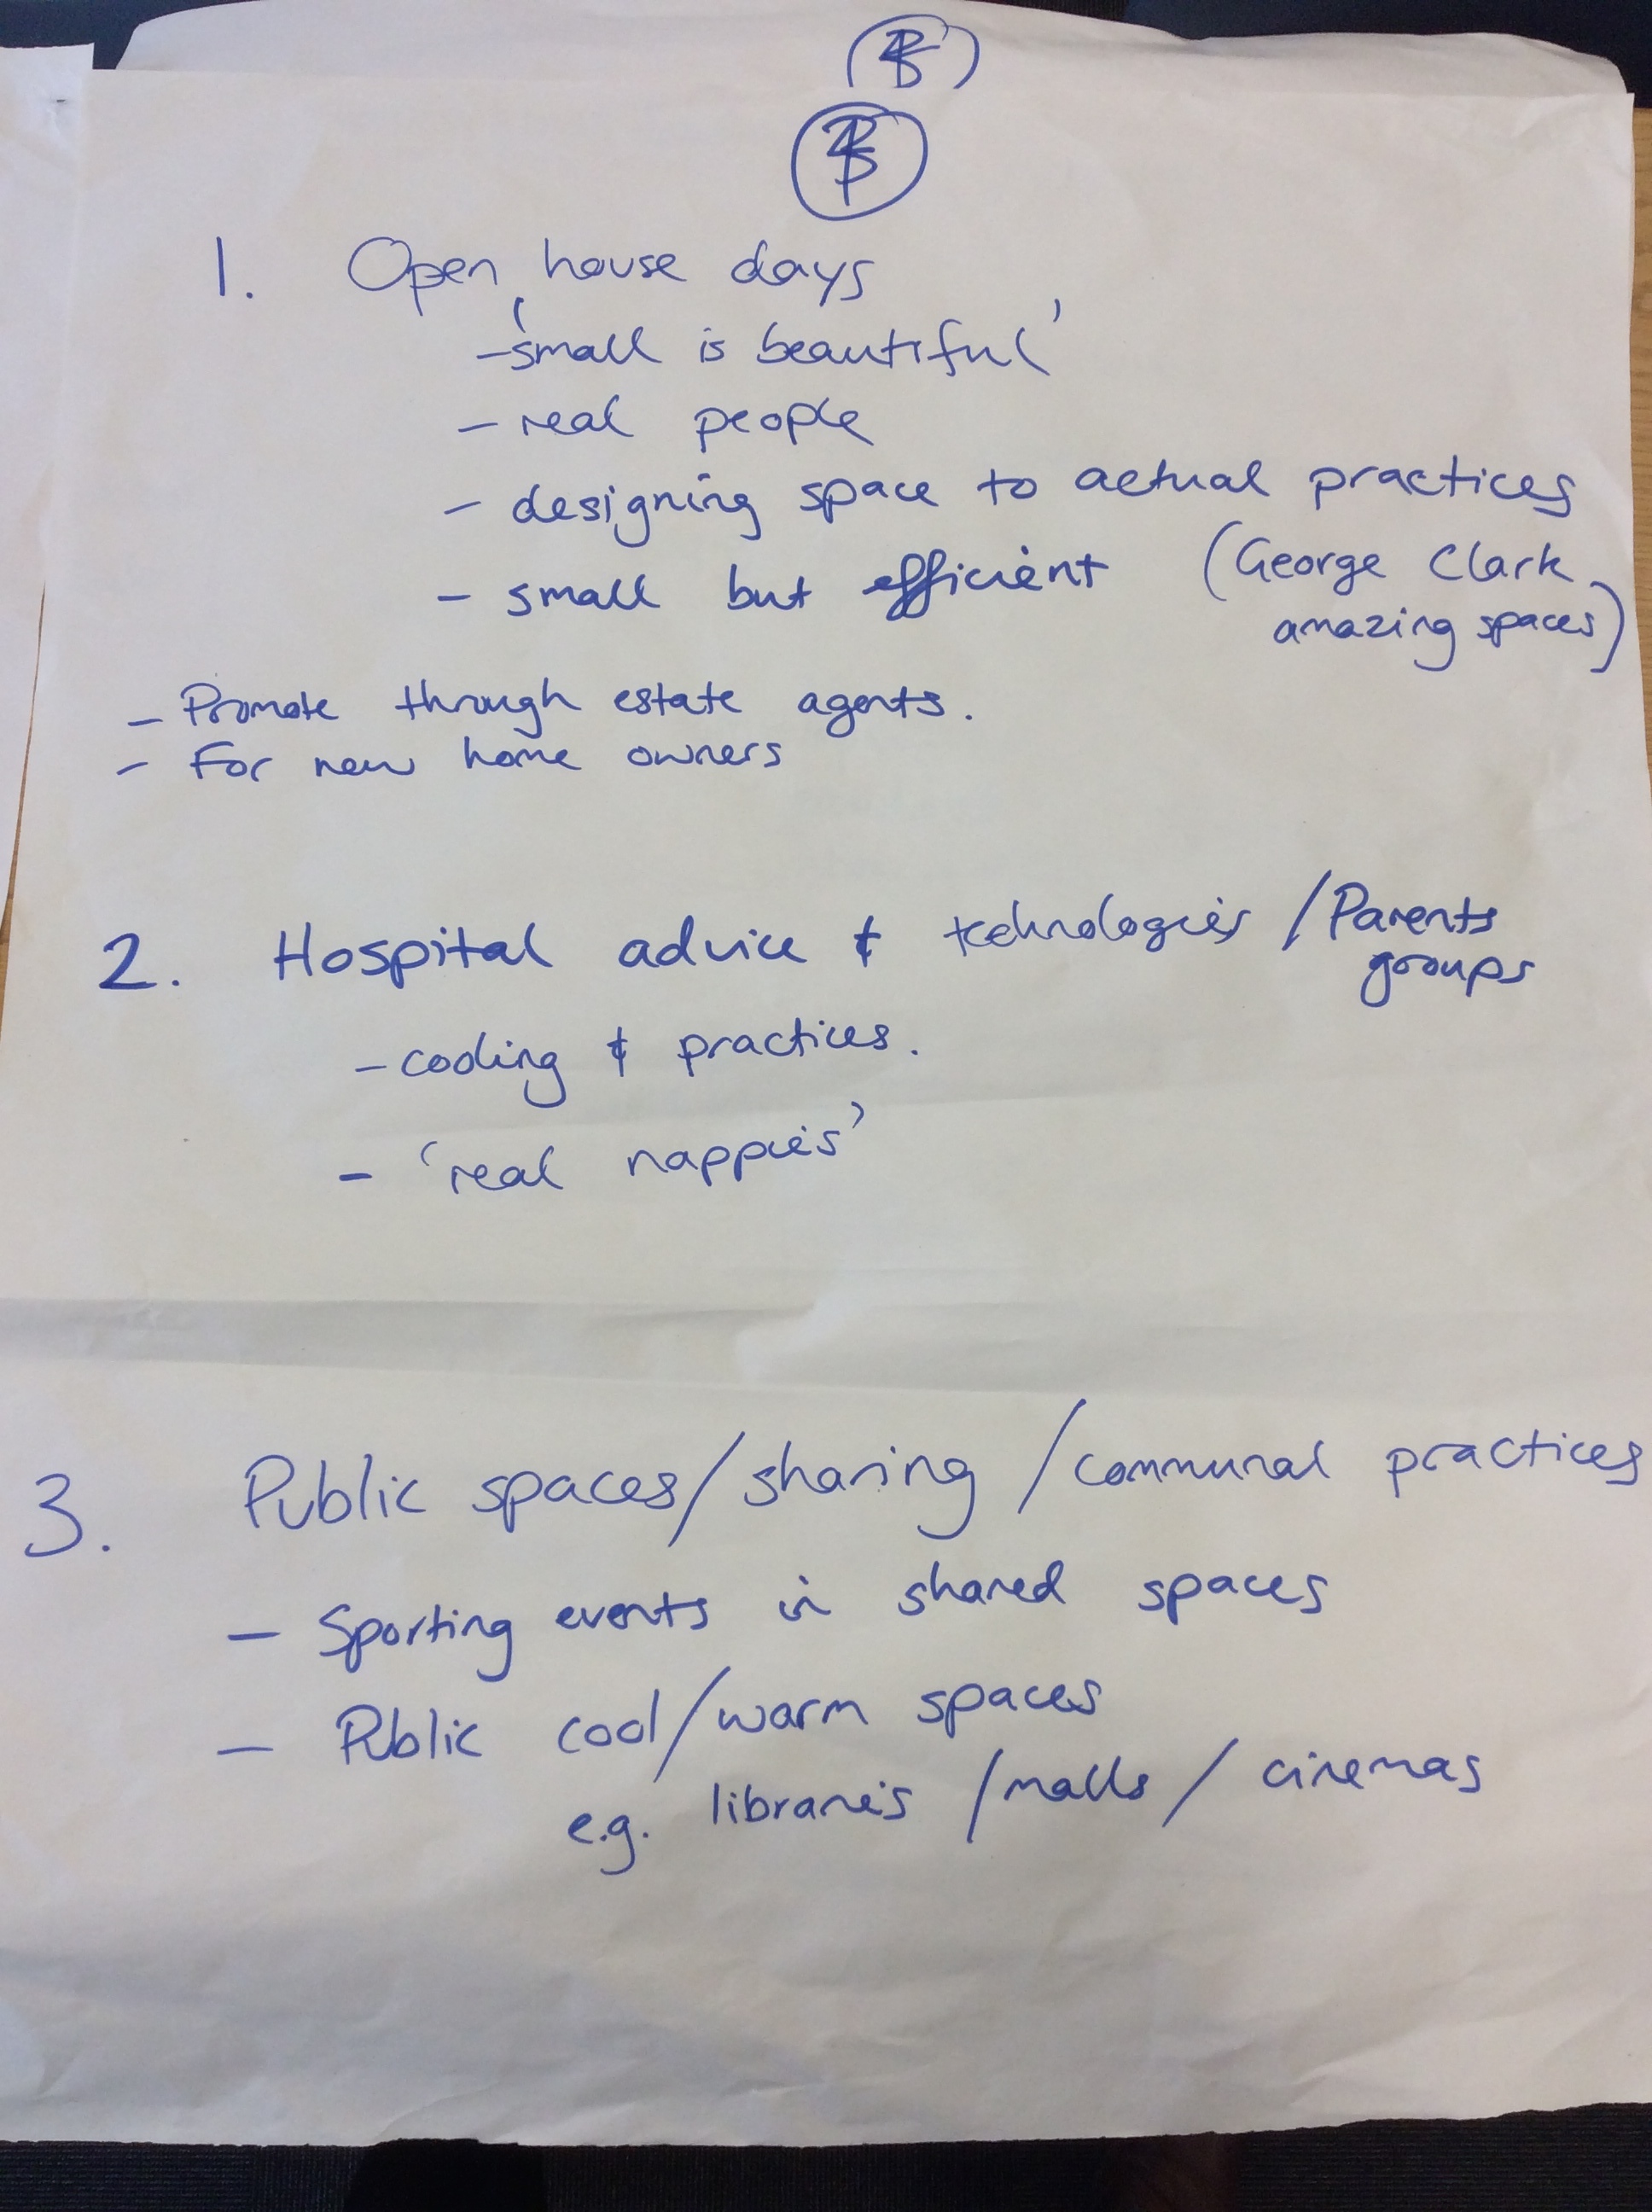 1. Open house days
-'small is beautiful'
- real people
- designing space to actual practices
- small but efficient (George Clark
amazing spaces)
- Promote through estate agents.
- For new home owners
2. Hospital advice & technologies / Parents
groups
- cooling & practices.
- 'real nappies'
3. Public spaces/sharing/communal practices
- Sporting events in shared spaces
- Public cool/warm spaces
e.g. libraries /malls / cinemas